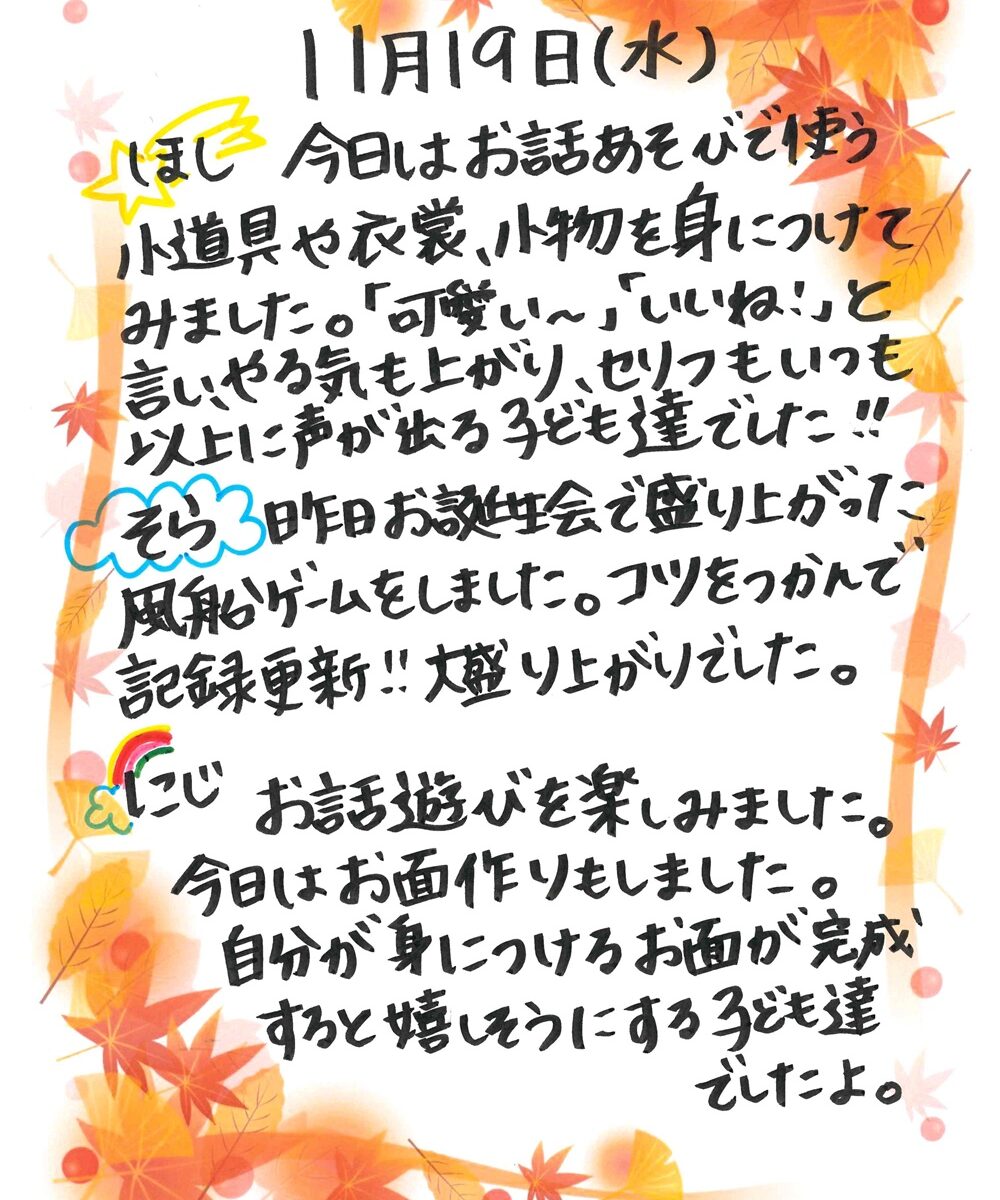 11月19日(水)
ほし 今日はお話あそびで使う
小道具や衣裳、小物を身につけて
みました。「可愛い〜」「いいね!」と
言い、やる気も上がり、セリフもいつも
以上に声が出る子ども達でした!!
そら 昨日お誕生会で盛り上がった
風船ゲームをしました。コツをつかんで
記録更新!!大盛り上がりでした。
にじ お話遊びを楽しみました。
今日はお面作りもしました。
自分が身につけるお面が完成
すると嬉しそうにする子ども達
でしたよ。